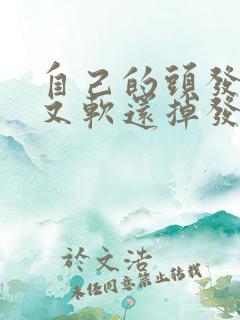 自己的頭發
又軟還掉發
於文浩
未任同意禁止轉載